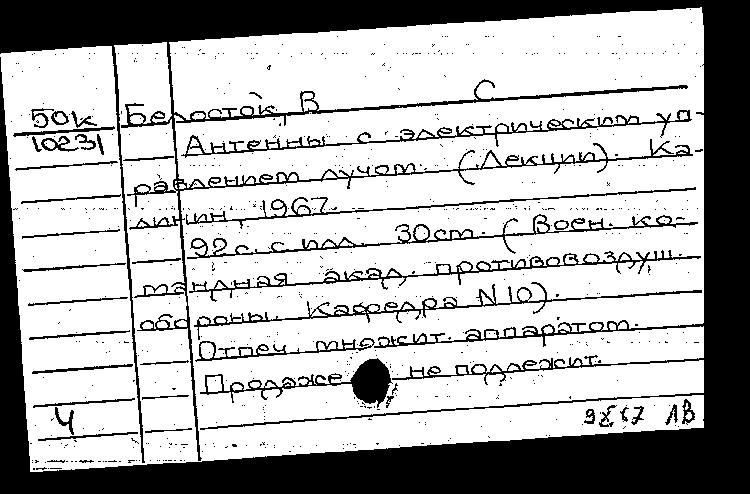 С
50к Белосток, В
10231 Антенны с электрическим уп-
равлением лучом. (Лекции). Ка-
линин, 1967.
92 с. с илл. 30 см. (Воен. ко-
мандная акад. противовоздуш.
обороны. Кафедра N 10).
Отпеч. множит. аппаратом.
Продаже не подлежит.
Ч
ЛВ